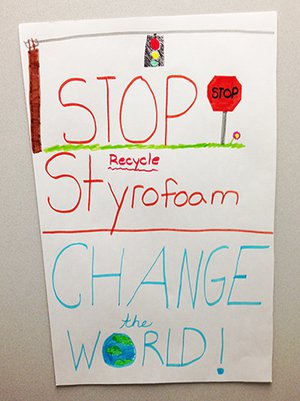 STOP
STOP
Recycle
Styrofoam
CHANGE
the
WORLD!